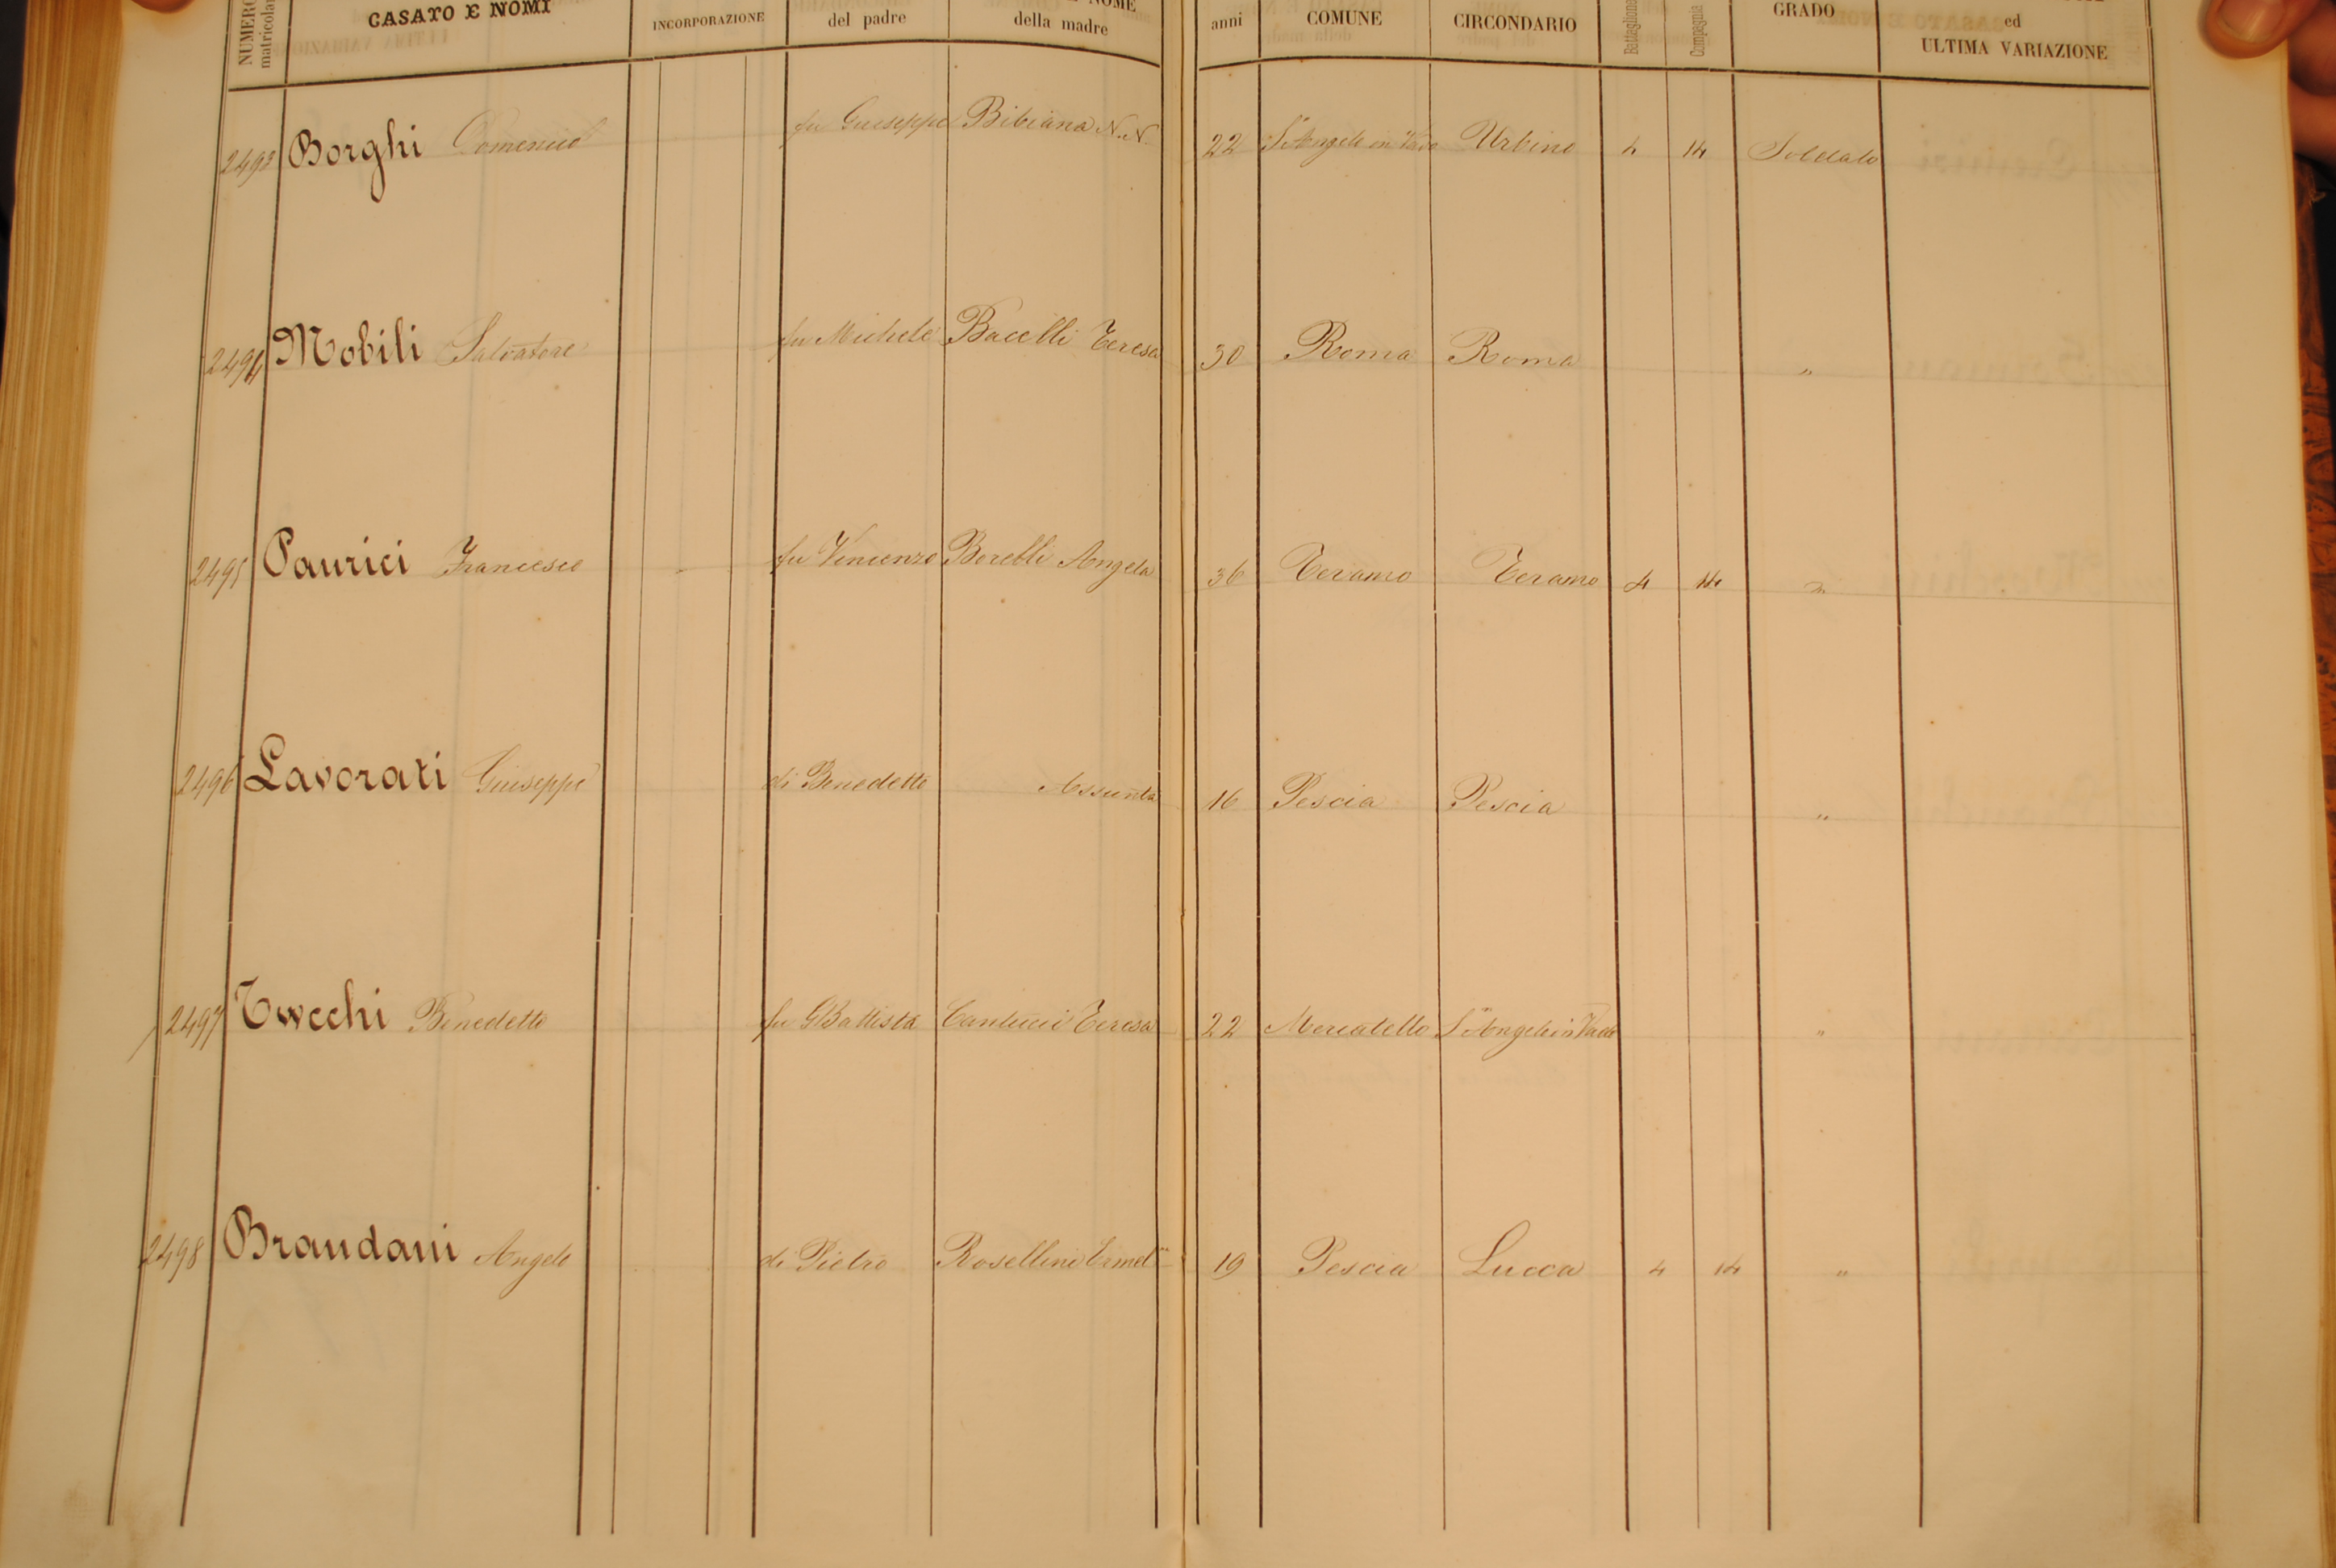 NUMERO matricolare CASATO E NOMI INCORPORAZIONE del padre NOME della madre anni COMUNE CIRCONDARIO Battaglione Compagnia GRADO ed ULTIMA VARIAZIONE
2493 Borghi Domenico fu Giuseppe Bibiana N. N. 22 S. Angelo in Vado Urbino 4 14 Soldato
2494 Mobili Salvatore fu Michele Bacelli Teresa 30 Roma Roma "
2495 Paurici Francesco fu Vincenzo Borelli Angela 36 Teramo Teramo 4 14 "
2496 Lavorati Giuseppe di Benedetto Assunta 16 Pescia Pescia "
2497 Benedetto fu GBattista Cantucci Teresa 22 Mercatello S. Angelo in Vado "
2498 Brandani Angelo di Pietro Rosellini 19 Pescia Lucca 4 14 "